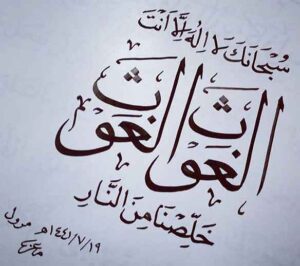 سُبْحَانَكَ لَا إِلٰهَ إِلَّا أَنْتَ
الْغَوْثَ الْغَوْثَ
خَلِّصْنَا مِنَ النَّارِ
١٤٤١/٧/١٩م